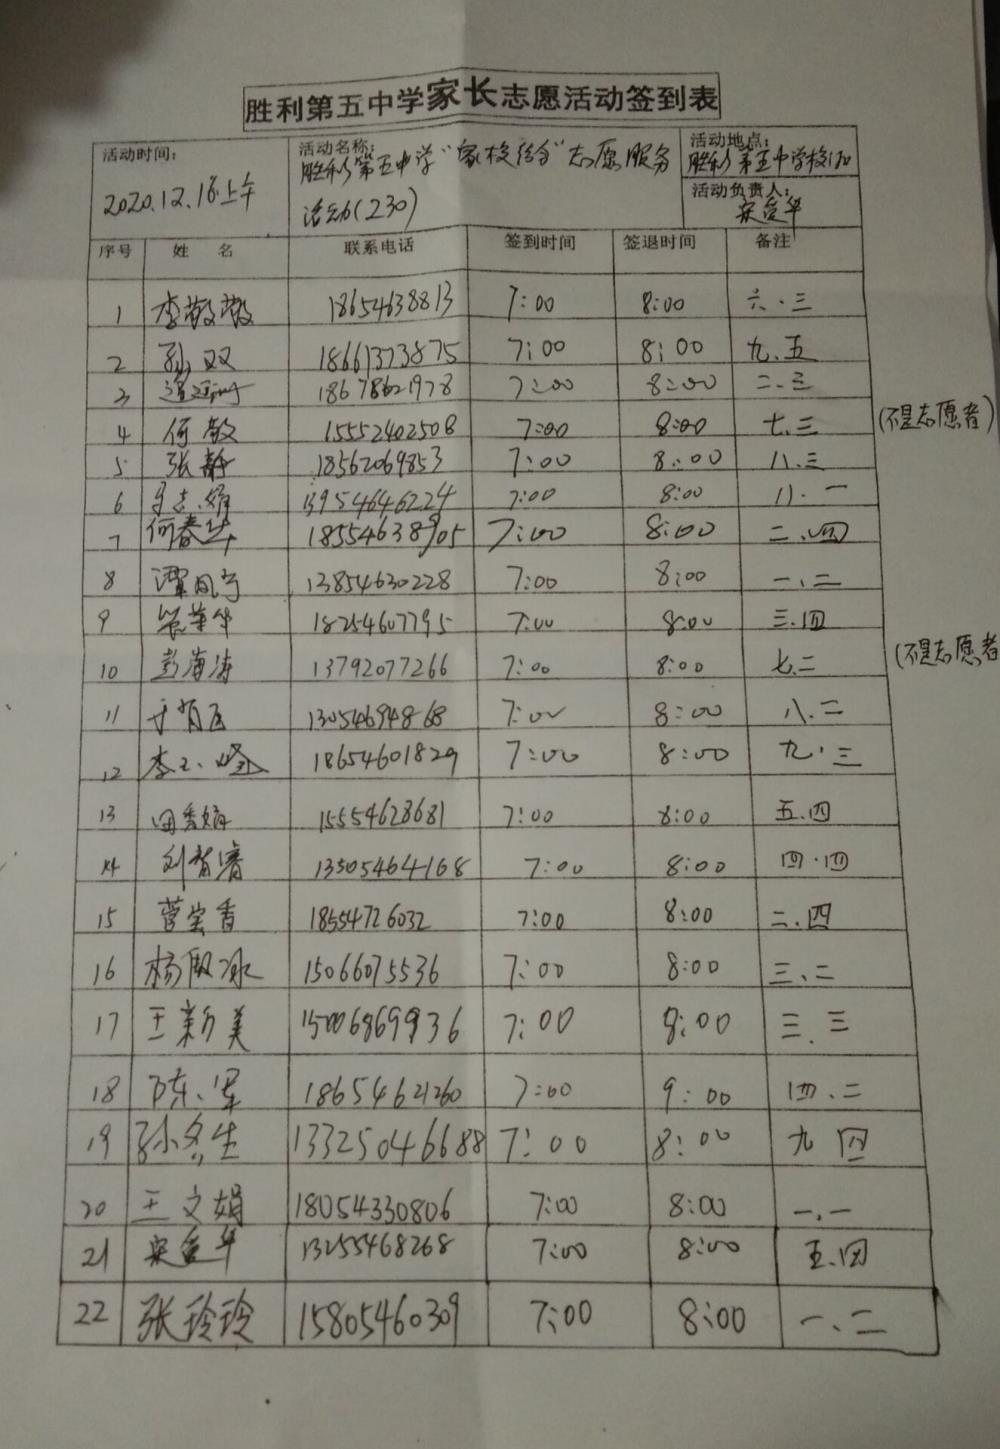 胜利第五中学家长志愿活动签到表
活动时间: 2020.12.16上午
活动名称: 胜利第五中学"家校结合"志愿服务
活动(230)
活动地点: 胜利第五中学校门口
活动负责人: 宋爱华
序号 姓名 联系电话 签到时间 签退时间 备注
1 李敬敬 18654638813 7:00 8:00 六.三
2 孙双 18661373875 7:00 8:00 九.五
3 18678621978 7:00 8:00 二.三
4 何敬 15552402508 7:00 8:00 七.三 (不是志愿者)
5 张静 18562069853 7:00 8:00 八.三
6 13954646224 7:00 8:00 八.一
7 何春华 18554638905 7:00 8:00 二.四
8 谭凤 13854630228 7:00 8:00 一.二
9 华 18254607795 7:00 8:00 三.四
10 彭海涛 13792077266 7:00 8:00 七.二 (不是志愿者)
11 13054694868 7:00 8:00 八.二
12 李 18654601829 7:00 8:00 九.三
13 田秀娟 15554628681 7:00 8:00 五.四
14 刘 13505464168 7:00 8:00 四.四
15 宝香 18554726032 7:00 8:00 二.四
16 杨殿冰 15066075536 7:00 8:00 三.二
17 王新美 15006869936 7:00 8:00 三.三
18 陈军 18654621260 7:00 9:00 四.二
19 孙冬生 13325046688 7:00 8:00 九 四
20 王文娟 18054330806 7:00 8:00 一.一
21 宋爱华 13255468268 7:00 8:00 五.四
22 张玲玲 15805460309 7:00 8:00 一.二